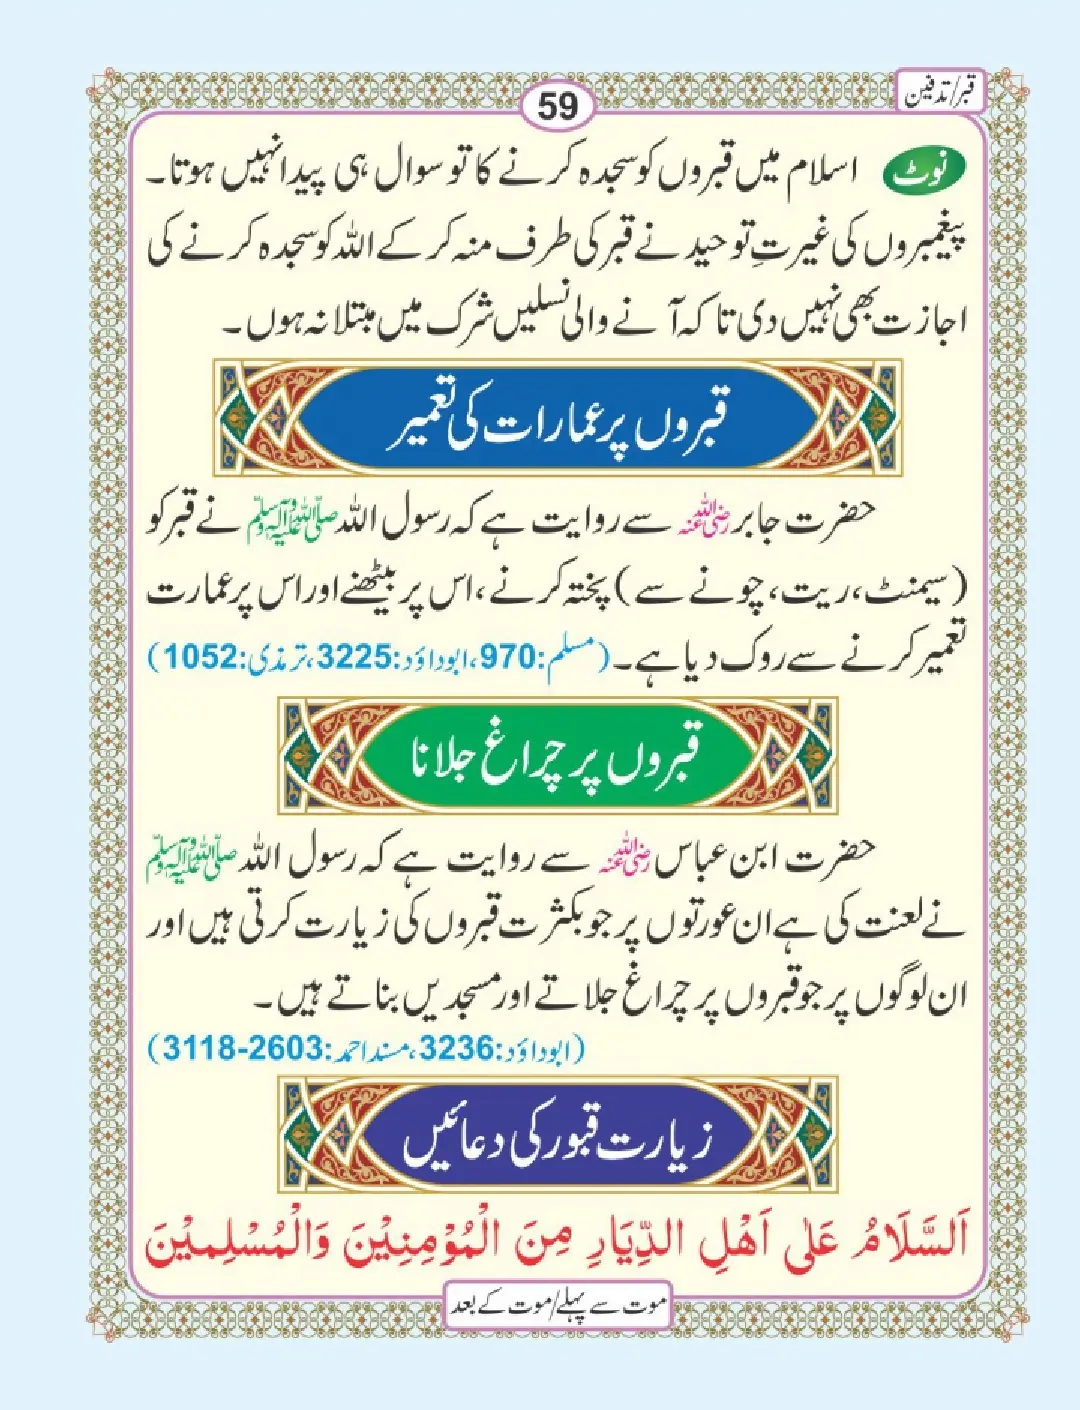 قبر/تدفین
59
نوٹ اسلام میں قبروں کو سجدہ کرنے کا تو سوال ہی پیدا نہیں ہوتا۔
پیغمبروں کی غیرتِ توحید نے قبر کی طرف منہ کر کے اللہ کو سجدہ کرنے کی
اجازت بھی نہیں دی تاکہ آنے والی نسلیں شرک میں مبتلا نہ ہوں۔
قبروں پر عمارات کی تعمیر
حضرت جابر رضی اللہ عنہ سے روایت ہے کہ رسول اللہ صلی اللہ علیہ وآلہ وسلم نے قبر کو
(سیمنٹ، ریت، چونے سے) پختہ کرنے، اس پر بیٹھنے اور اس پر عمارت
تعمیر کرنے سے روک دیا ہے۔ (مسلم:970، ابوداؤد:3225، ترمذی:1052)
قبروں پر چراغ جلانا
حضرت ابن عباس رضی اللہ عنہ سے روایت ہے کہ رسول اللہ صلی اللہ علیہ وآلہ وسلم
نے لعنت کی ہے ان عورتوں پر جو بکثرت قبروں کی زیارت کرتی ہیں اور
ان لوگوں پر جو قبروں پر چراغ جلاتے اور مسجدیں بناتے ہیں۔
(ابوداؤد:3236، مسند احمد:2603-3118)
زیارت قبور کی دعائیں
اَلسَّلَامُ عَلٰی اَهْلِ الدِّيَارِ مِنَ الْمُؤْمِنِيْنَ وَالْمُسْلِمِيْنَ
موت سے پہلے/موت کے بعد